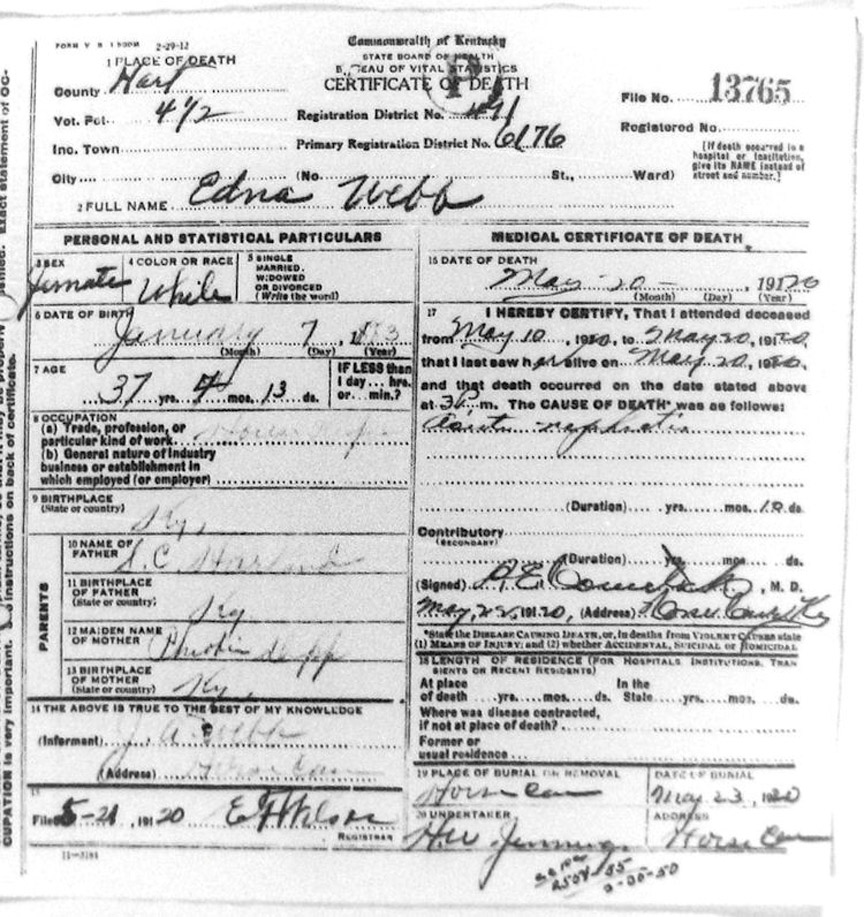 2-29-12
Commonwealth of Kentucky
STATE BOARD OF HEALTH
BUREAU OF VITAL STATISTICS
CERTIFICATE OF DEATH
1 PLACE OF DEATH
County Hart
Vot. Pct. 4 1/2
Inc. Town
City
Registration District No. 491
Primary Registration District No. 6176
(No. St., Ward)
File No. 13765
Registered No.
[If death occurred in a hospital or institution, give its NAME instead of street and number.]
2 FULL NAME Edna Webb
PERSONAL AND STATISTICAL PARTICULARS
3 SEX Female
4 COLOR OR RACE White
5 SINGLE
MARRIED,
WIDOWED
OR DIVORCED
(Write the word)
6 DATE OF BIRTH January 7, 1883
(Month) (Day) (Year)
7 AGE 37 yrs. 4 mos. 13 ds.
IF LESS than
1 day... hrs.
or... min.?
8 OCCUPATION
(a) Trade, profession, or
particular kind of work House Keeper
(b) General nature of industry
business or establishment in
which employed (or employer)
9 BIRTHPLACE
(State or country) Ky,
PARENTS
10 NAME OF
FATHER S. C.
11 BIRTHPLACE
OF FATHER
(State or country) Ky
12 MAIDEN NAME
OF MOTHER Depp
13 BIRTHPLACE
OF MOTHER
(State or country) Ky
14 THE ABOVE IS TRUE TO THE BEST OF MY KNOWLEDGE
(Informant) J. A. Webb
(Address) Horse Cave
15
Filed 5-21, 1920 E H Wilson
REGISTRAR
11-3184
MEDICAL CERTIFICATE OF DEATH
16 DATE OF DEATH
May 20 , 1920
(Month) (Day) (Year)
17 I HEREBY CERTIFY, That I attended deceased
from May 10, 1920, to May 20, 1920
that I last saw her alive on May 20, 1920
and that death occurred on the date stated above
at 3P m. The CAUSE OF DEATH* was as follows:
Acute nephritis
(Duration) yrs. mos. 10 ds.
Contributory
(SECONDARY)
(Duration) yrs. mos. ds.
(Signed) , M. D.
May, 22, 1920, (Address) Horse Cave Ky
*State the DISEASE CAUSING DEATH, or, in deaths from VIOLENT CAUSES state
(1) MEANS OF INJURY; and (2) whether ACCIDENTAL, SUICIDAL or HOMICIDAL
18 LENGTH OF RESIDENCE (FOR HOSPITALS, INSTITUTIONS, TRAN
SIENTS OR RECENT RESIDENTS)
At place In the
of death yrs. mos. ds. State yrs. mos. ds.
Where was disease contracted,
if not at place of death?
Former or
usual residence
19 PLACE OF BURIAL OR REMOVAL
Horse Cave
DATE OF BURIAL
May 23, 1920
20 UNDERTAKER
H W Jennings
ADDRESS
Horse Cave
CUPATION is very important.
instructions on back of certificate.
Exact statement of OC-